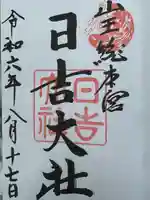 山王総本宮
日吉大社
令和六年八月十七日
日吉
大社